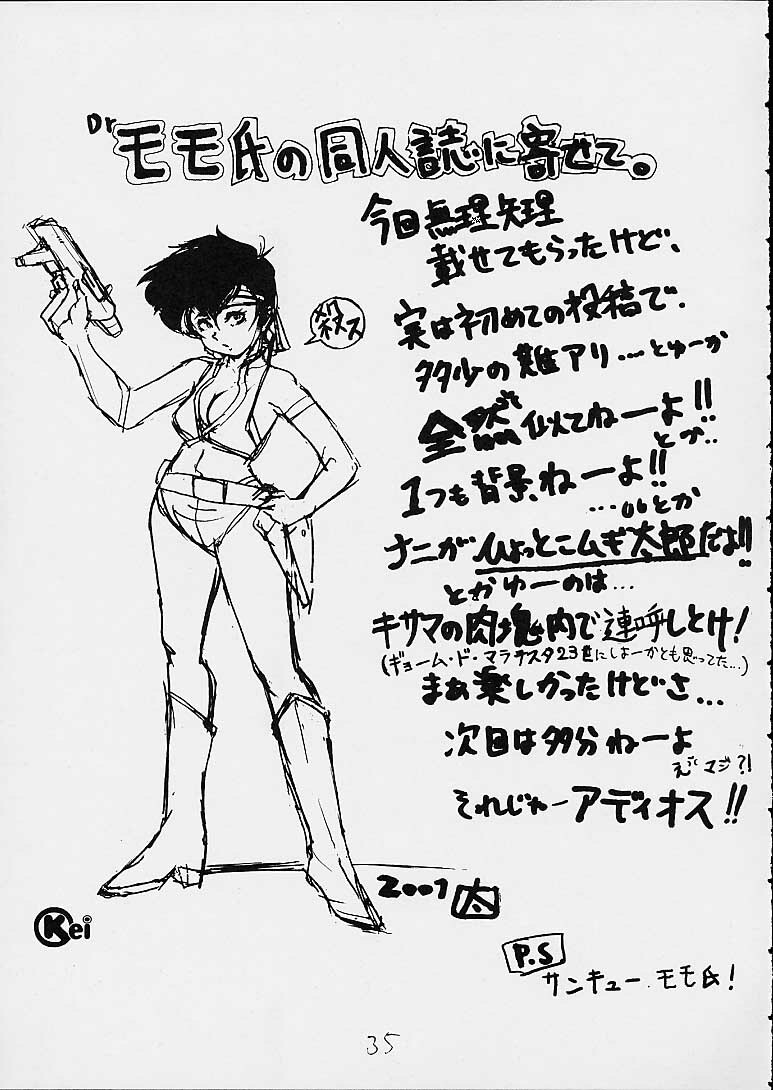 Dr モモ氏の同人誌に寄せて。
今回無理矢理
載せてもらったけど、
実は初めての投稿で、
タタ少の難アリ……とゆーか
全然似てねーよ!!
とか..
1つも背景ねーよ!!
...とか
ナニがひょっとこムギ太郎だよ!!
とかゆーのは…
キサマの肉塊内で連呼しとけ!
(ギョーム・ド・マラチスタ23世にしよーかとも思ってた…)
まあ楽しかったけどさ…
次回は多分ねーよ
えゞマジ?!
それじゃーアディオス!!
2001
Kei
P.S
サンキュー、モモ氏!
35